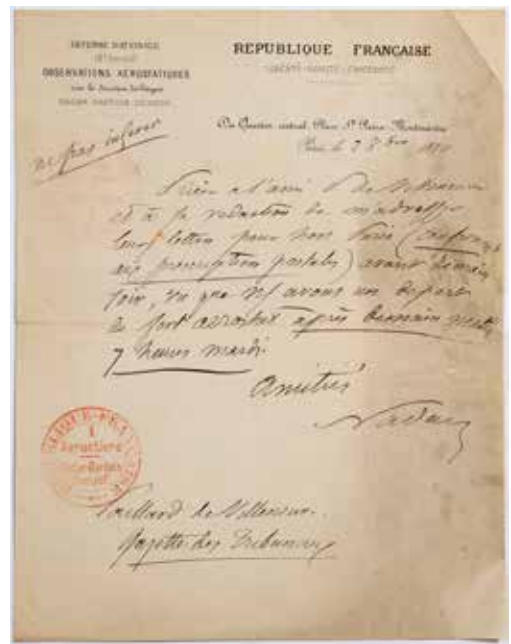 DEFENSE NATIONALE
OBSERVATIONS AEROSTATIQUES
NADAR
REPUBLIQUE FRANÇAISE
LIBERTÉ-EGALITÉ-FRATERNITÉ
Du Quartier central, Place St Pierre-Montmartre
Paris, le
ne pas insérer
Prière à l'ami de
et à la rédaction de m'adresser
leurs lettres pour hors Paris (
aux prescriptions postales) avant demain
soir, vu que ns avons un départ
de fort aérostat après demain
7 heures mardi.
Amitiés
Nadar
REPUBLIQUE FRANÇAISE
Aerostiers
Paillard de Villeneuve.
Gazette des Tribunaux